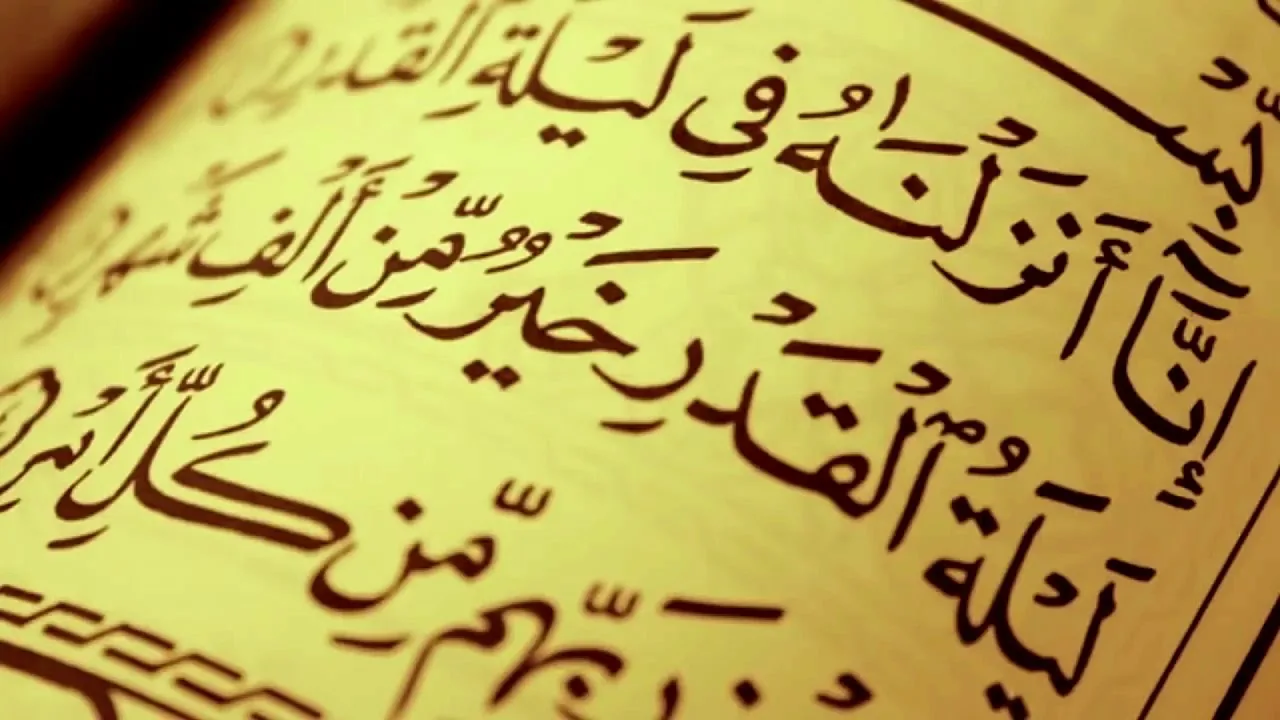 بِسْ
إِنَّآ أَنزَلْنَٰهُ فِي لَيْلَةِ ٱلْقَدْرِ
لَيْلَةُ ٱلْقَدْرِ خَيْرٌ مِّنْ أَلْفِ شَهْرٍ
رَبِّهِم مِّن كُلِّ أَمْرٍ